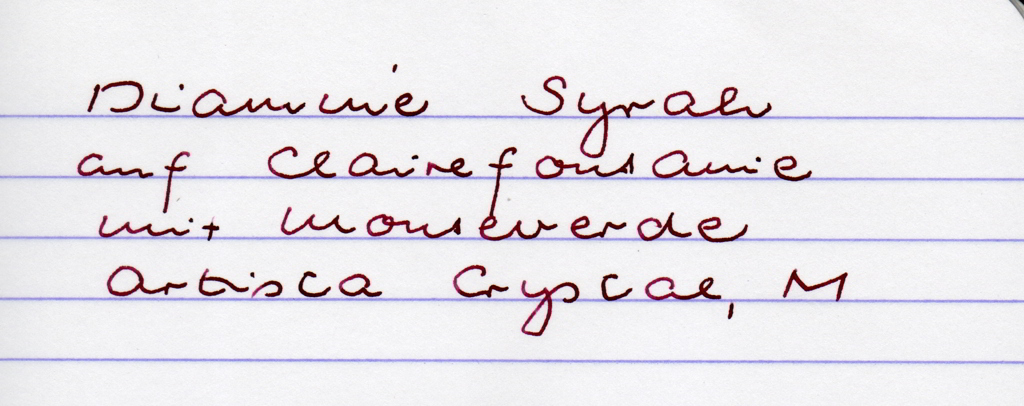 Diamine Syrah
auf Clairefontaine
mit Monteverde
Artista Crystal, M